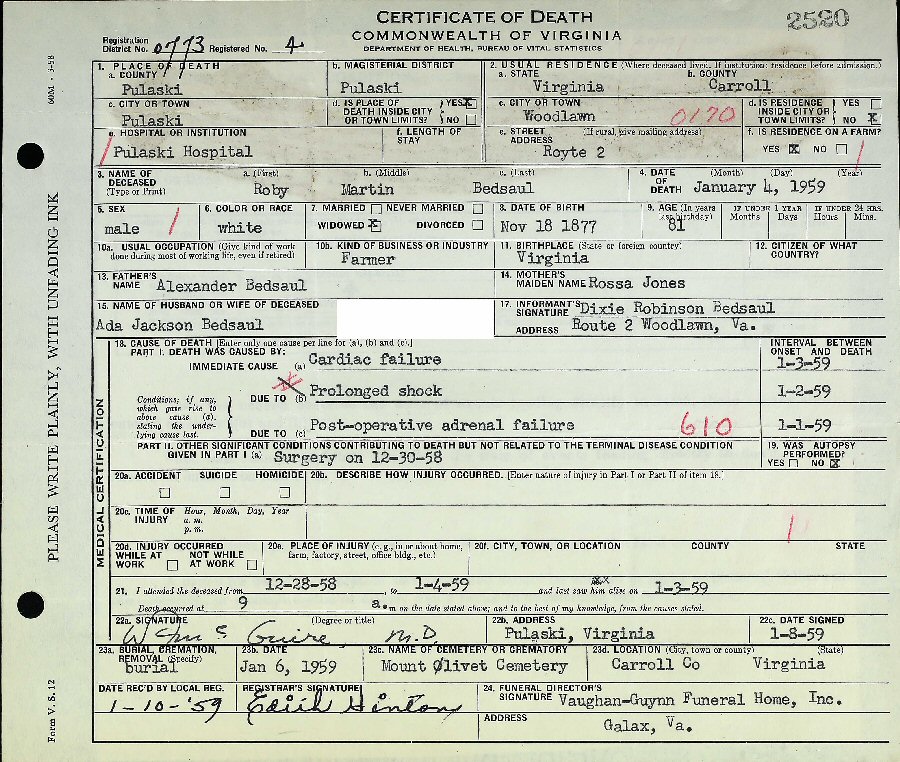 CERTIFICATE OF DEATH
COMMONWEALTH OF VIRGINIA
DEPARTMENT OF HEALTH, BUREAU OF VITAL STATISTICS
2520
Registration District No. 0773 Registered No. 4
1. PLACE OF DEATH
a. COUNTY
Pulaski
b. MAGISTERIAL DISTRICT
Pulaski
2. USUAL RESIDENCE (Where deceased lived. If institution: residence before admission.)
a. STATE
Virginia
b. COUNTY
Carroll
c. CITY OR TOWN
Pulaski
d. IS PLACE OF DEATH INSIDE CITY OR TOWN LIMITS? YES X NO
c. CITY OR TOWN
Woodlawn
0170
d. IS RESIDENCE INSIDE CITY OR TOWN LIMITS? YES NO X
e. HOSPITAL OR INSTITUTION
Pulaski Hospital
f. LENGTH OF STAY
e. STREET ADDRESS (If rural, give mailing address)
Royte 2
f. IS RESIDENCE ON A FARM?
YES X NO
3. NAME OF DECEASED (Type or Print)
a. (First) b. (Middle) c. (Last)
Roby Martin Bedsaul
4. DATE OF DEATH (Month) (Day) (Year)
January 4, 1959
5. SEX
male
6. COLOR OR RACE
white
7. MARRIED NEVER MARRIED
WIDOWED X DIVORCED
8. DATE OF BIRTH
Nov 18 1877
9. AGE (In years last birthday)
81
IF UNDER 1 YEAR
Months Days
IF UNDER 24 HRS.
Hours Mins.
10a. USUAL OCCUPATION (Give kind of work done during most of working life, even if retired)
10b. KIND OF BUSINESS OR INDUSTRY
Farmer
11. BIRTHPLACE (State or foreign country)
Virginia
12. CITIZEN OF WHAT COUNTRY?
13. FATHER'S NAME Alexander Bedsaul
14. MOTHER'S MAIDEN NAME Rossa Jones
15. NAME OF HUSBAND OR WIFE OF DECEASED
Ada Jackson Bedsaul
17. INFORMANT'S SIGNATURE Dixie Robinson Bedsaul
ADDRESS Route 2 Woodlawn, Va.
18. CAUSE OF DEATH [Enter only one cause per line for (a), (b) and (c).]
PART I. DEATH WAS CAUSED BY:
INTERVAL BETWEEN ONSET AND DEATH
IMMEDIATE CAUSE (a) Cardiac failure 1-3-59
Conditions, if any, which gave rise to above cause (a), stating the underlying cause last.
DUE TO (b) Prolonged shock 1-2-59
DUE TO (c) Post-operative adrenal failure 610 1-1-59
PART II. OTHER SIGNIFICANT CONDITIONS CONTRIBUTING TO DEATH BUT NOT RELATED TO THE TERMINAL DISEASE CONDITION
GIVEN IN PART I (a) Surgery on 12-30-58
19. WAS AUTOPSY PERFORMED?
YES NO X
20a. ACCIDENT SUICIDE HOMICIDE
20b. DESCRIBE HOW INJURY OCCURRED. [Enter nature of injury in Part I or Part II of item 18.]
20c. TIME OF INJURY Hour, Month, Day, Year
a. m.
p. m.
20d. INJURY OCCURRED
WHILE AT WORK NOT WHILE AT WORK
20e. PLACE OF INJURY (e. g., in or about home, farm, factory, street, office bldg., etc.)
20f. CITY, TOWN, OR LOCATION COUNTY STATE
21. I attended the deceased from 12-28-58, to 1-4-59 and last saw him alive on 1-3-59
Death occurred at 9 a.m on the date stated above; and to the best of my knowledge, from the causes stated.
22a. SIGNATURE (Degree or title)
Guire M.D.
22b. ADDRESS
Pulaski, Virginia
22c. DATE SIGNED
1-8-59
23a. BURIAL, CREMATION, REMOVAL (Specify)
burial
23b. DATE
Jan 6, 1959
23c. NAME OF CEMETERY OR CREMATORY
Mount Olivet Cemetery
23d. LOCATION (City, town or county) (State)
Carroll Co Virginia
DATE REC'D BY LOCAL REG.
1-10-'59
REGISTRAR'S SIGNATURE
Edith Hinton
24. FUNERAL DIRECTOR'S SIGNATURE Vaughan-Guynn Funeral Home, Inc.
ADDRESS
Galax, Va.
MEDICAL CERTIFICATION
PLEASE WRITE PLAINLY, WITH UNFADING INK
Form V. S. 12